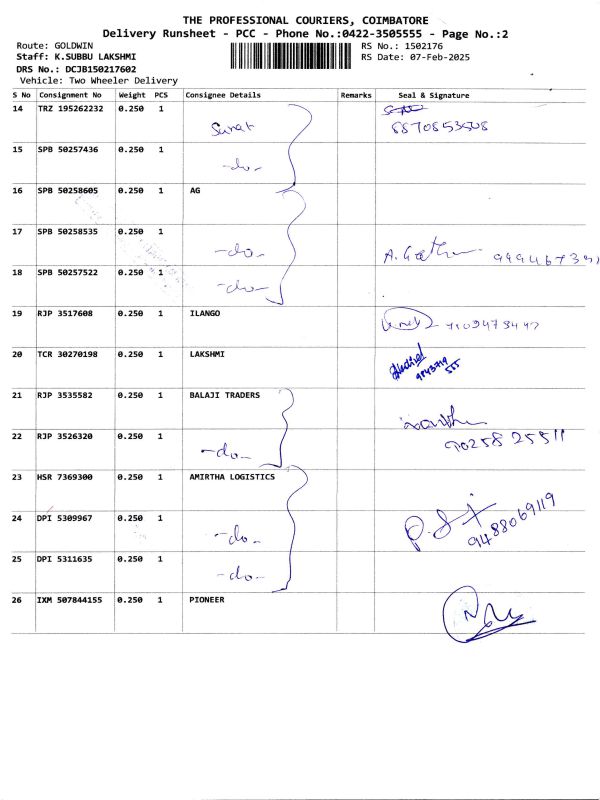 THE PROFESSIONAL COURIERS, COIMBATORE
Delivery Runsheet - PCC - Phone No.:0422-3505555 - Page No.:2
Route: GOLDWIN RS No.: 1502176
Staff: K.SUBBU LAKSHMI RS Date: 07-Feb-2025
DRS No.: DCJB150217602
Vehicle: Two Wheeler Delivery
S No Consignment No Weight PCS Consignee Details Remarks Seal & Signature
14 TRZ 195262232 0.250 1
8870853508
15 SPB 50257436 0.250 1 -do-
16 SPB 50258605 0.250 1 AG
17 SPB 50258535 0.250 1 -do- A.
18 SPB 50257522 0.250 1 -do-
19 RJP 3517608 0.250 1 ILANGO
20 TCR 30270198 0.250 1 LAKSHMI
21 RJP 3535582 0.250 1 BALAJI TRADERS
22 RJP 3526320 0.250 1 -do- 9025825511
23 HSR 7369300 0.250 1 AMIRTHA LOGISTICS
24 DPI 5309967 0.250 1 -do- 9488069119
25 DPI 5311635 0.250 1 -do-
26 IXM 507844155 0.250 1 PIONEER